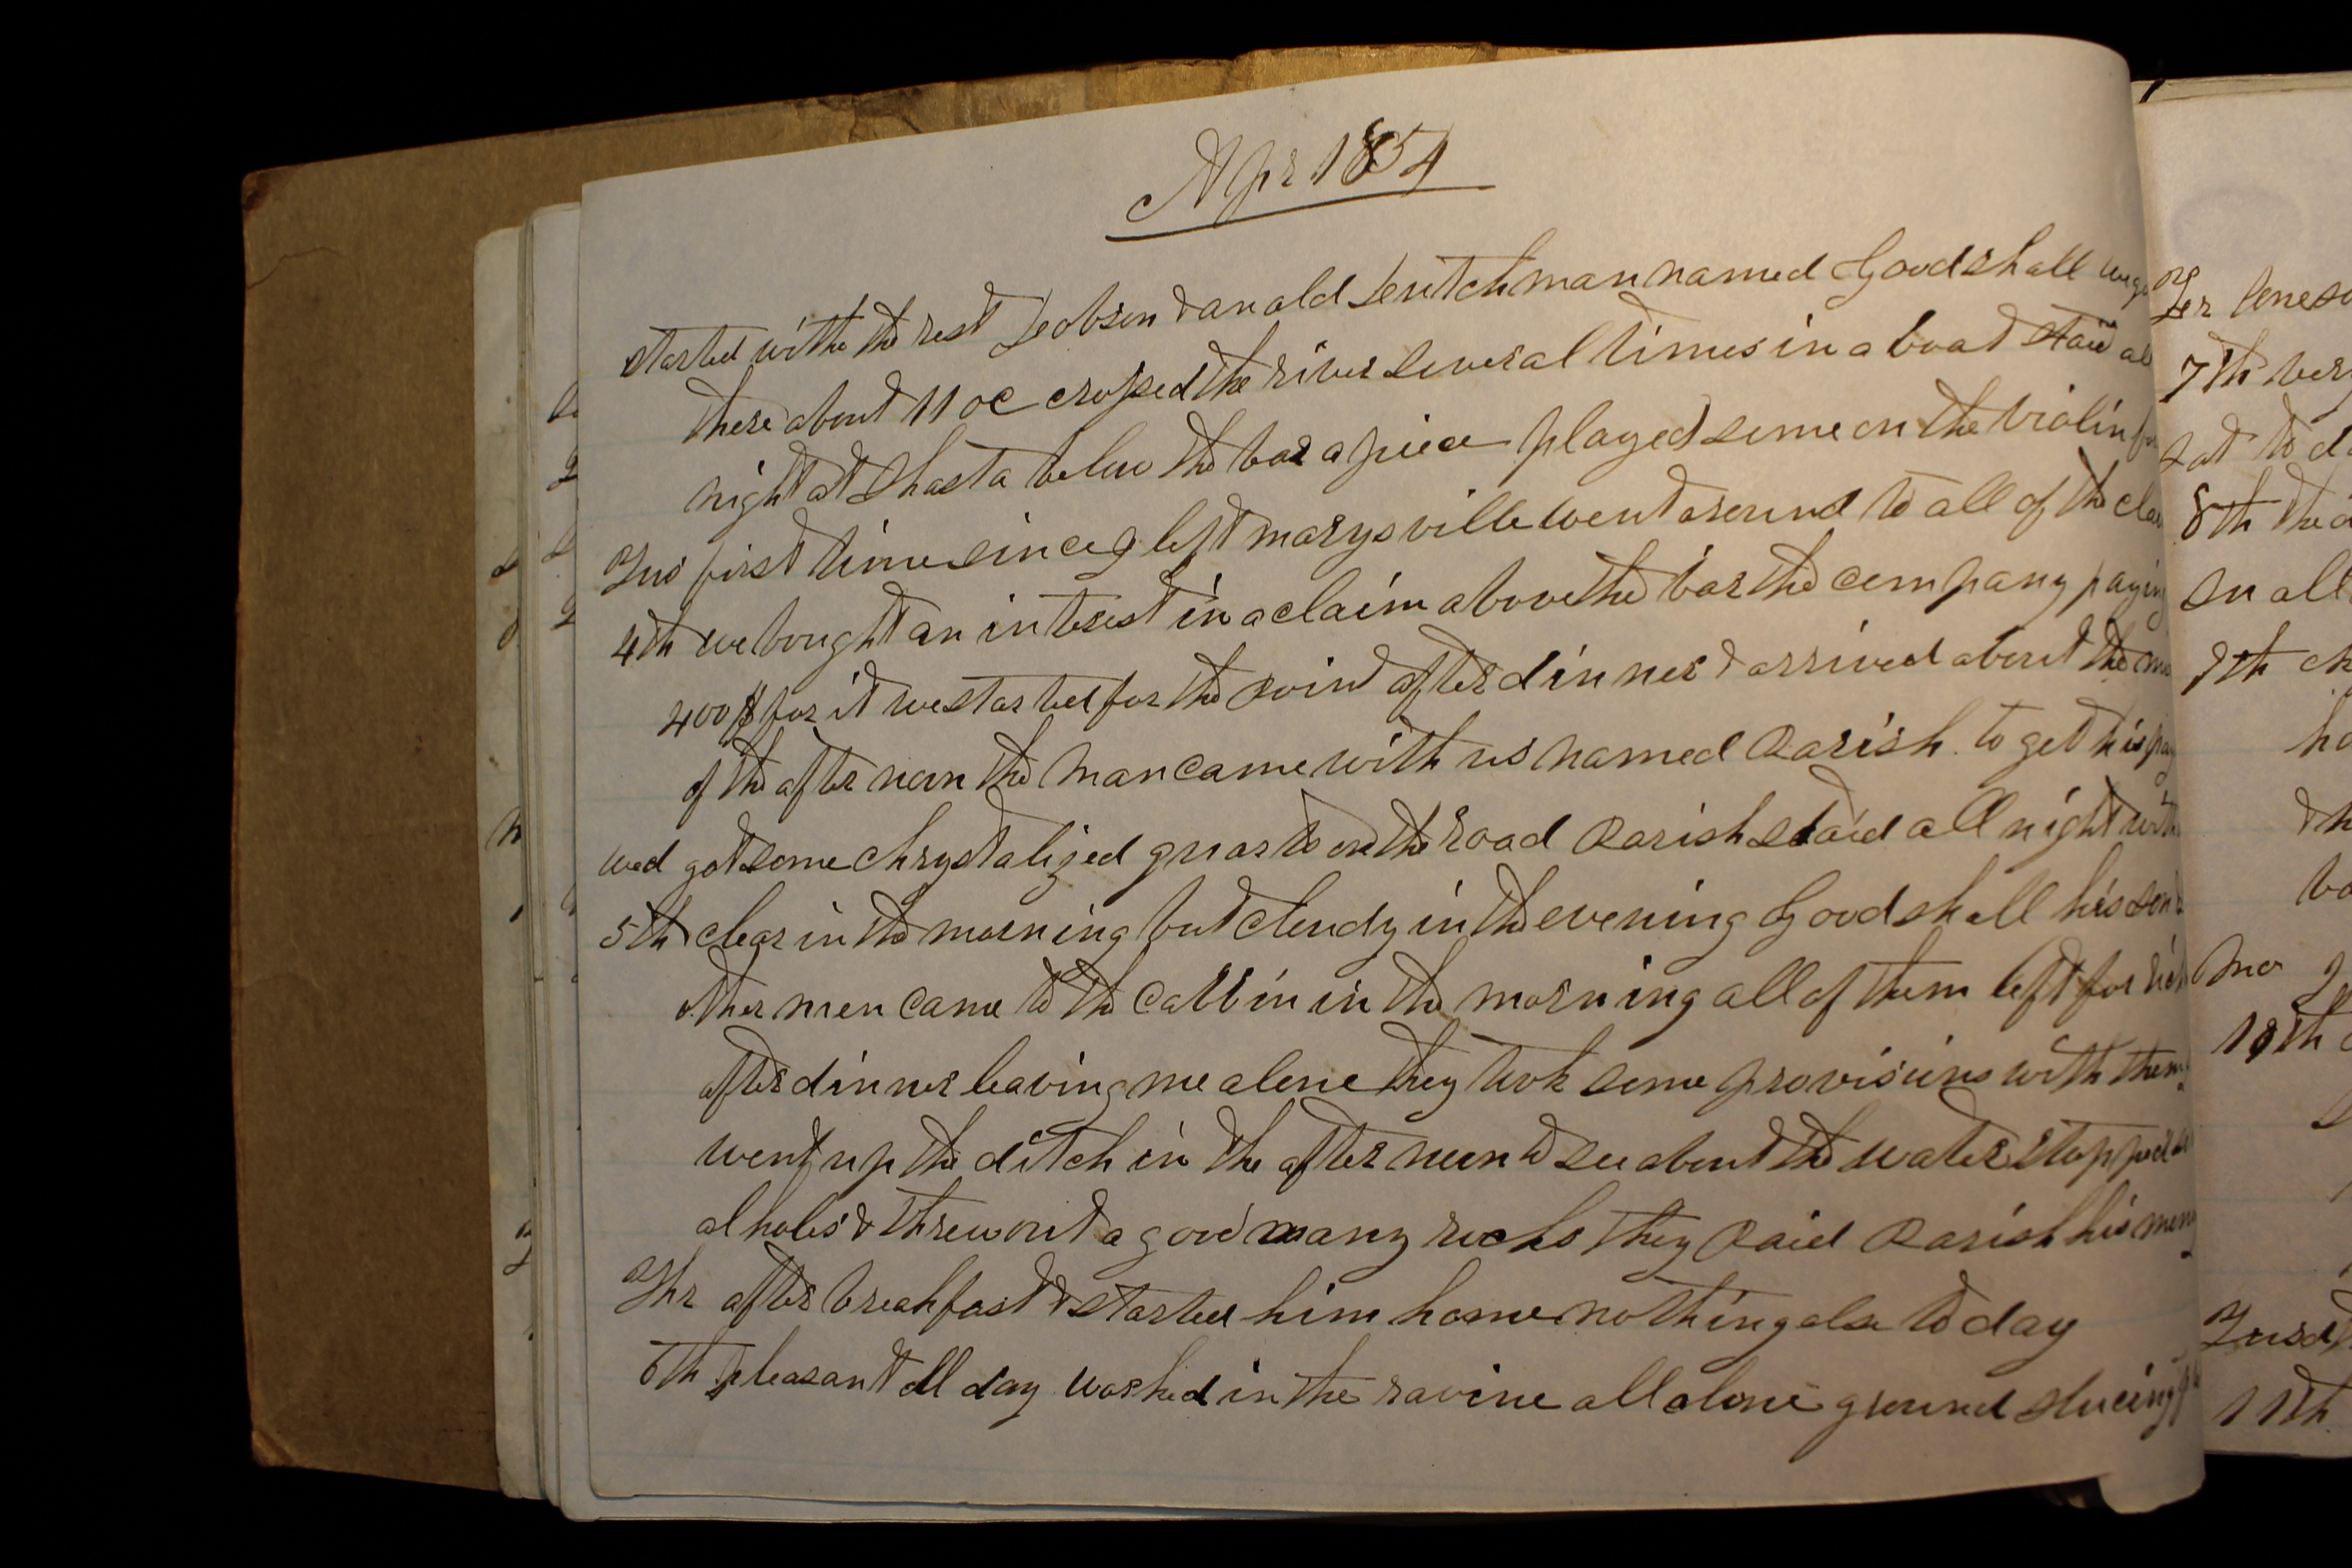 Apr 1854
started with the rest Jobson & an old Deutchman named Goodshall
there about 11 oc crossed the river several times in a boat staid
night at Shasta below the bar a piece played some on the violin
Tus first time since I left marysville went around to all of the
4th we bought an interest in a claim above the bar the company paying
400$ for it we started for the point after dinner & arrived about the
of the after noon the man came with us named Parish to get his pay
wed got some chrystalized quarts on the road Parish staid all night with
5th clear in the morning but cloudy in the evening Goodshall his son
other men came to the cabbin in the morning all of them left for
after dinner leaving me alone they took some provisions with them
went up the ditch in the after noon to see about the water stopped
al holes & threw out a good many rocks they Paid Parish his money
Thr after breakfast & started him home nothing else to day
6th pleasant all day worked in the ravine all alone ground sluicing
7th
8th
9th
10th
11th